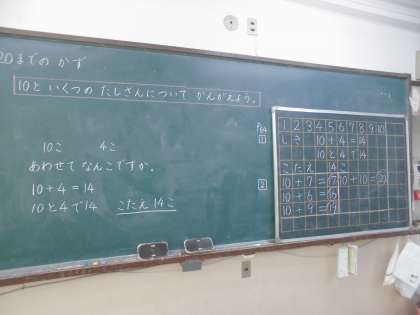 20までの かず
10と いくつの たしざんについて かんがえよう。
10こ 4こ
あわせて なんこですか。
10+4=14
10と4で14 こたえ 14こ
P64
1 2 3 4 5 6 7 8 9 10
1 しき 10+4=14
10と4で14
こたえ 14こ
2 10+7=17 10+10=20
10+6=16
10+9=19